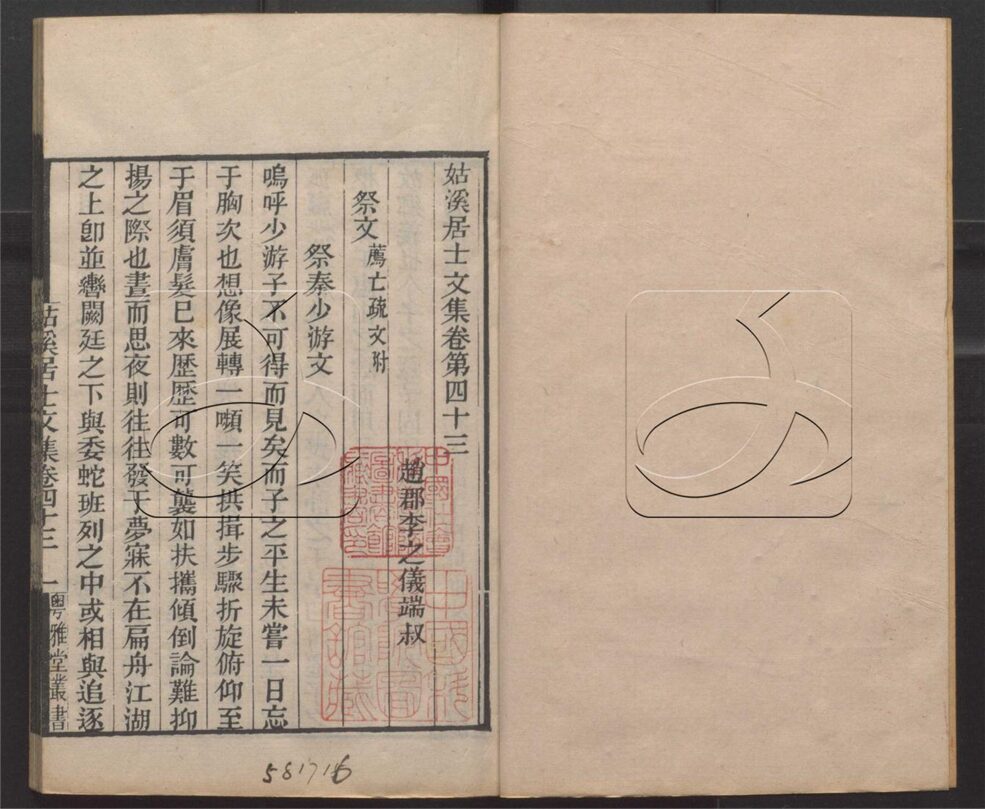 姑溪居士文集卷第四十三
趙郡李之儀端叔
祭文 薦亡疏文附
祭秦少游文
嗚呼少游子不可得而見矣而子之平生未嘗一日忘
于胸次也想像展轉一嚬一笑拱揖步驟折旋俯仰至
于眉須膚髮已來歷歷可數可襲如扶攜傾倒論難抑
揚之際也晝而思夜則往往發于夢寐不在扁舟江湖
之上卽並轡闕廷之下與委蛇班列之中或相與追逐
姑溪居士文集卷四十三 一 粵雅堂叢書
581716